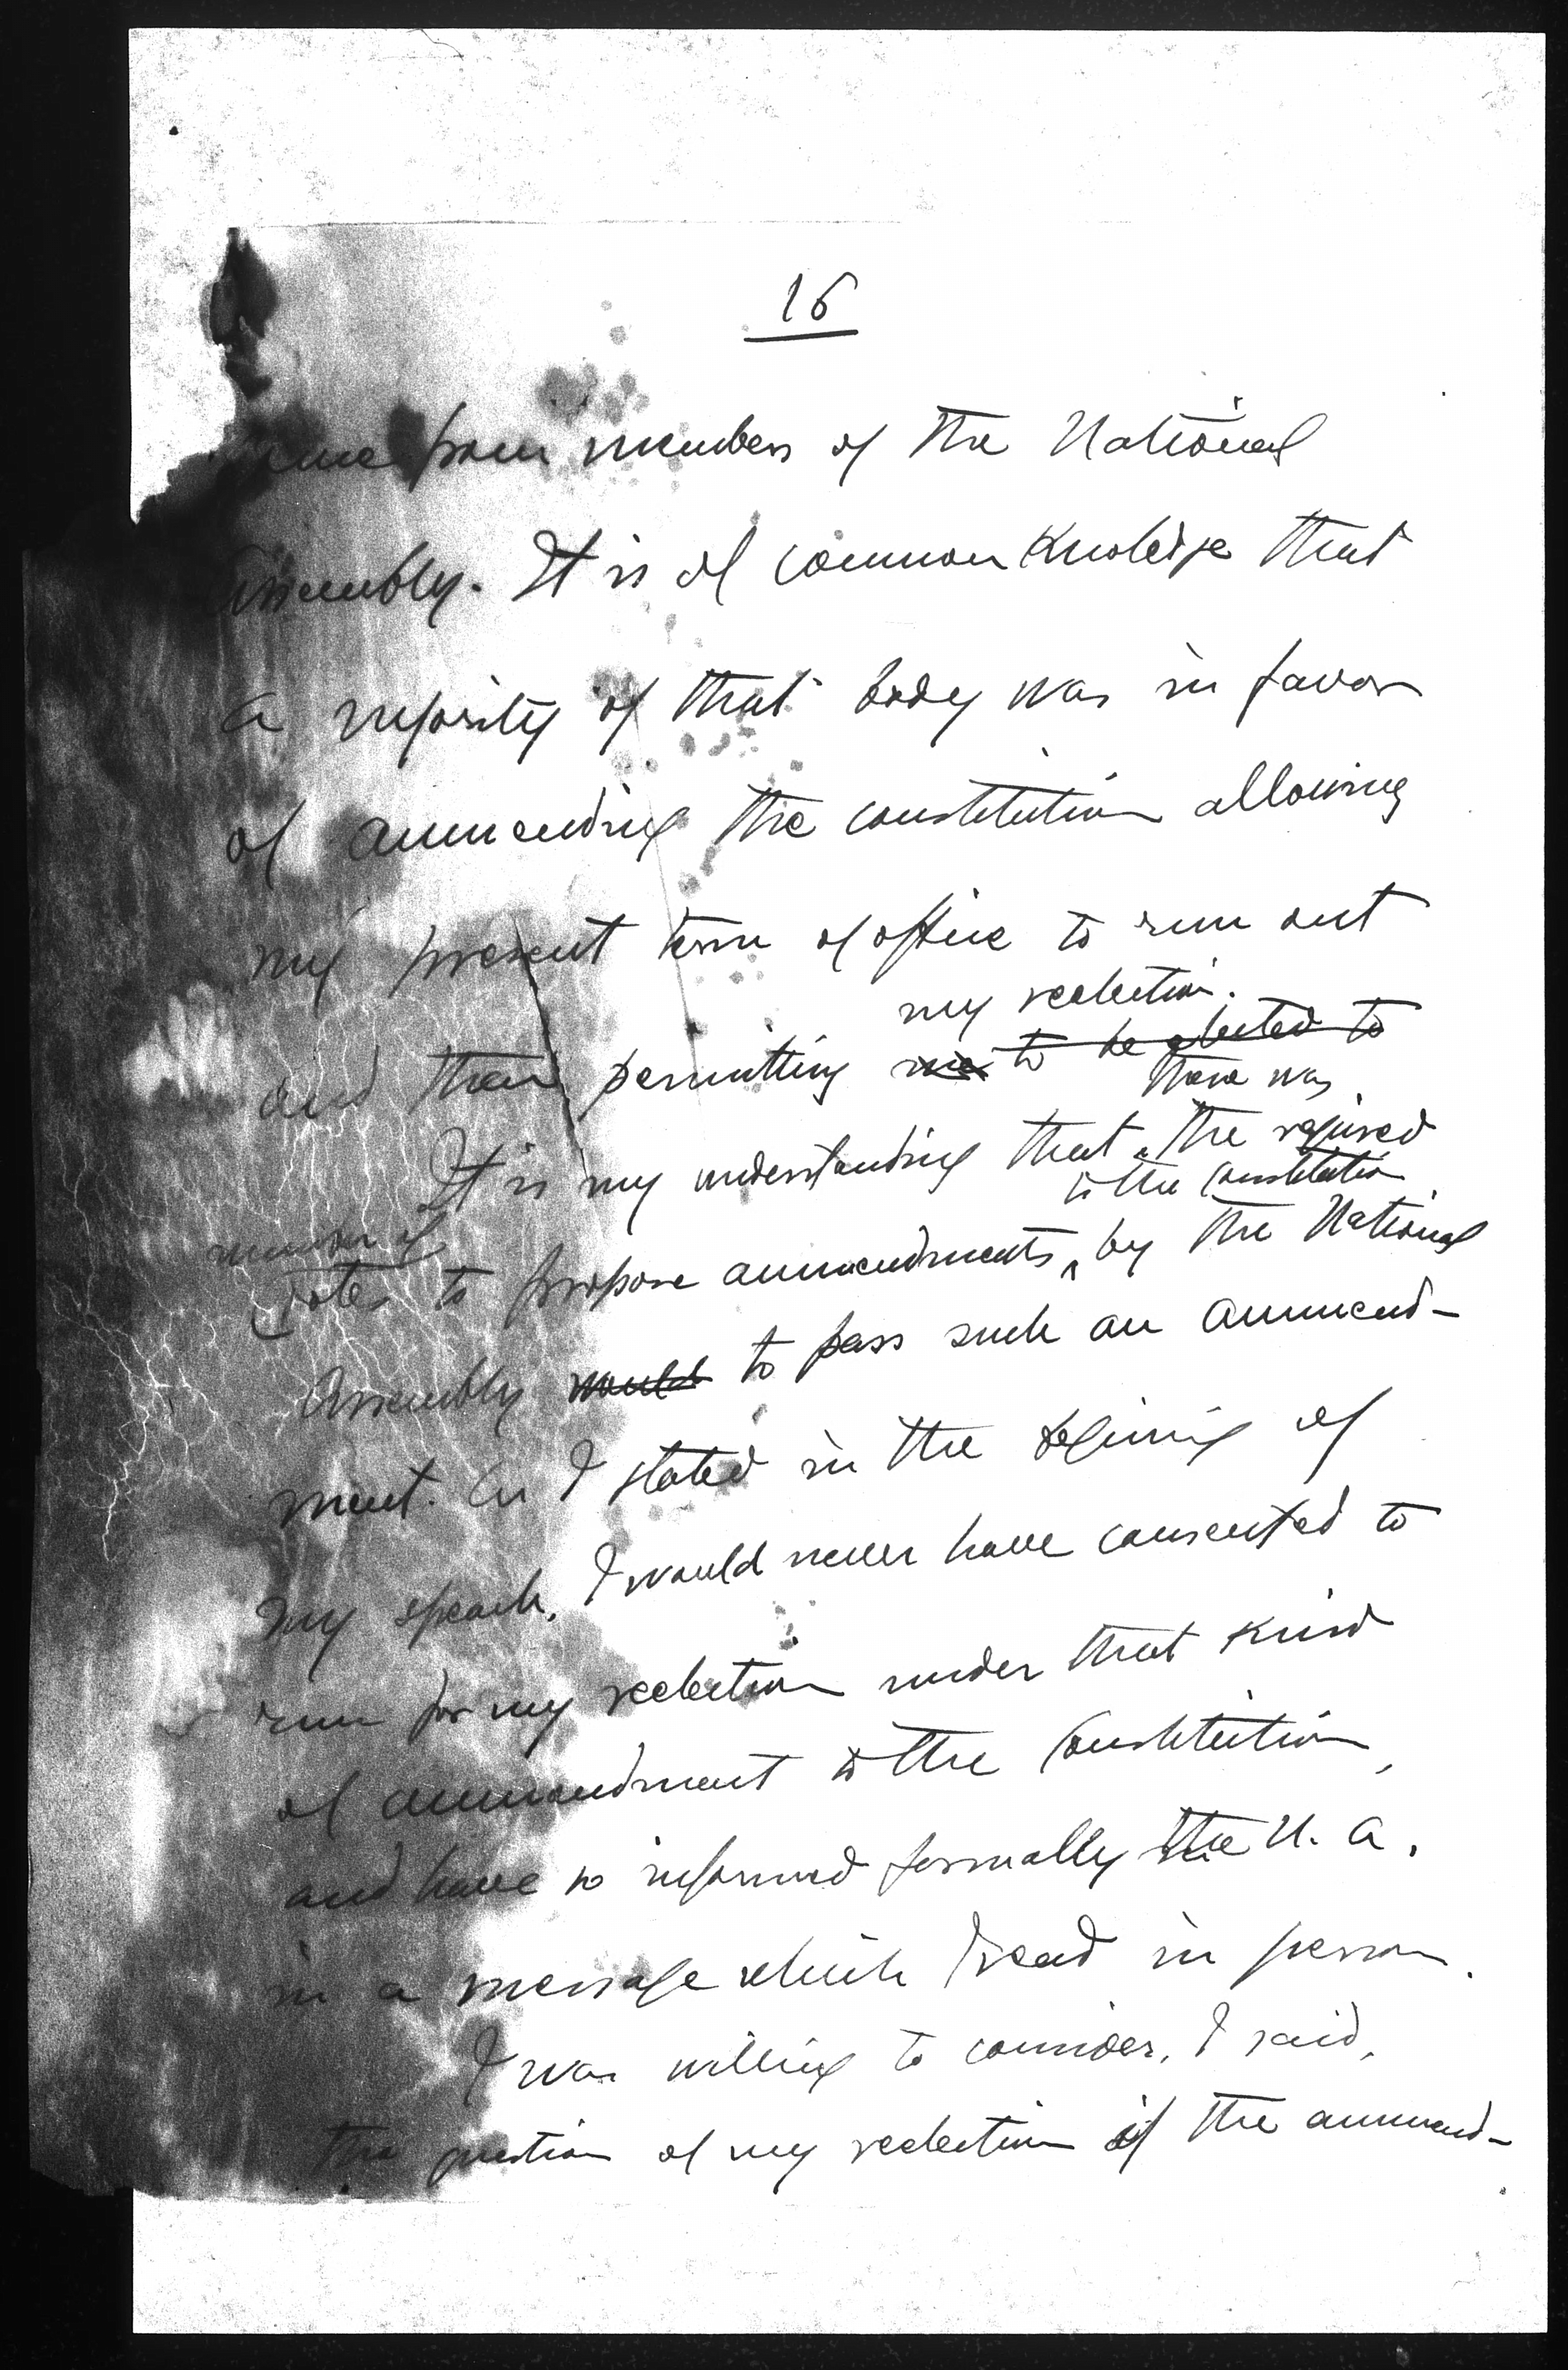 16
came from members of the National
Assembly. It is of common Knoledge that
a majority of that body was in favor
of ammending the constitution allowing
my present term of office to run out
my reelection.
and then permitting me to be elected to
there was
It is my understanding that the required
to the constitution
number of
votes to propose ammendments by the National
Assembly would to pass such an ammend-
ment. As I stated in the begining of
my speach, I would never have consented to
run for my reelection under that kind
of ammendment to the Constitution,
and have so informed formally the N. A.
in a message which I read in person.
I was willing to consider, I said,
the question of my reelection if the ammend-